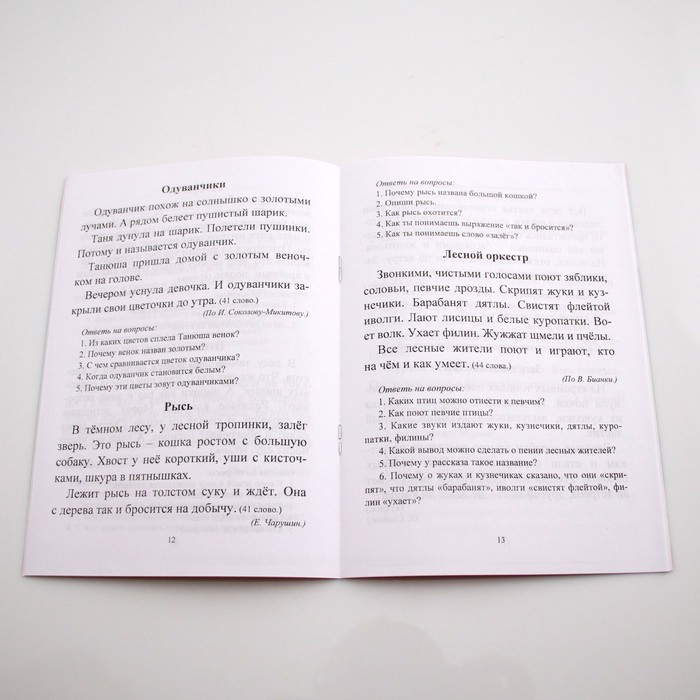 Одуванчики
Одуванчик похож на солнышко с золотыми
лучами. А рядом белеет пушистый шарик.
Таня дунула на шарик. Полетели пушинки.
Потому и называется одуванчик.
Танюша пришла домой с золотым веноч-
ком на голове.
Вечером уснула девочка. И одуванчики за-
крыли свои цветочки до утра. (41 слово.)
(По И. Соколову-Микитову.)
Ответь на вопросы:
1. Из каких цветов сплела Танюша венок?
2. Почему венок назван золотым?
3. С чем сравнивается цветок одуванчика?
4. Когда одуванчик становится белым?
5. Почему эти цветы зовут одуванчиками?
Рысь
В тёмном лесу, у лесной тропинки, залёг
зверь. Это рысь – кошка ростом с большую
собаку. Хвост у неё короткий, уши с кисточ-
ками, шкура в пятнышках.
Лежит рысь на толстом суку и ждёт. Она
с дерева так и бросится на добычу. (41 слово.)
(Е. Чарушин.)
12
Ответь на вопросы:
1. Почему рысь названа большой кошкой?
2. Опиши рысь.
3. Как рысь охотится?
4. Как ты понимаешь выражение «так и бросится»?
5. Как ты понимаешь слово «залёг»?
Лесной оркестр
Звонкими, чистыми голосами поют зяблики,
соловьи, певчие дрозды. Скрипят жуки и куз-
нечики. Барабанят дятлы. Свистят флейтой
иволги. Лают лисицы и белые куропатки. Во-
ет волк. Ухает филин. Жужжат шмели и пчёлы.
Все лесные жители поют и играют, кто
на чём и как умеет. (44 слова.)
(По В. Бианки.)
Ответь на вопросы:
1. Каких птиц можно отнести к певчим?
2. Как поют певчие птицы?
3. Какие звуки издают жуки, кузнечики, дятлы, куро-
патки, филины?
4. Какой вывод можно сделать о пении лесных жителей?
5. Почему у рассказа такое название?
6. Почему о жуках и кузнечиках сказано, что они «скри-
пят», что дятлы «барабанят», иволги «свистят флейтой», фи-
лин «ухает»?
13